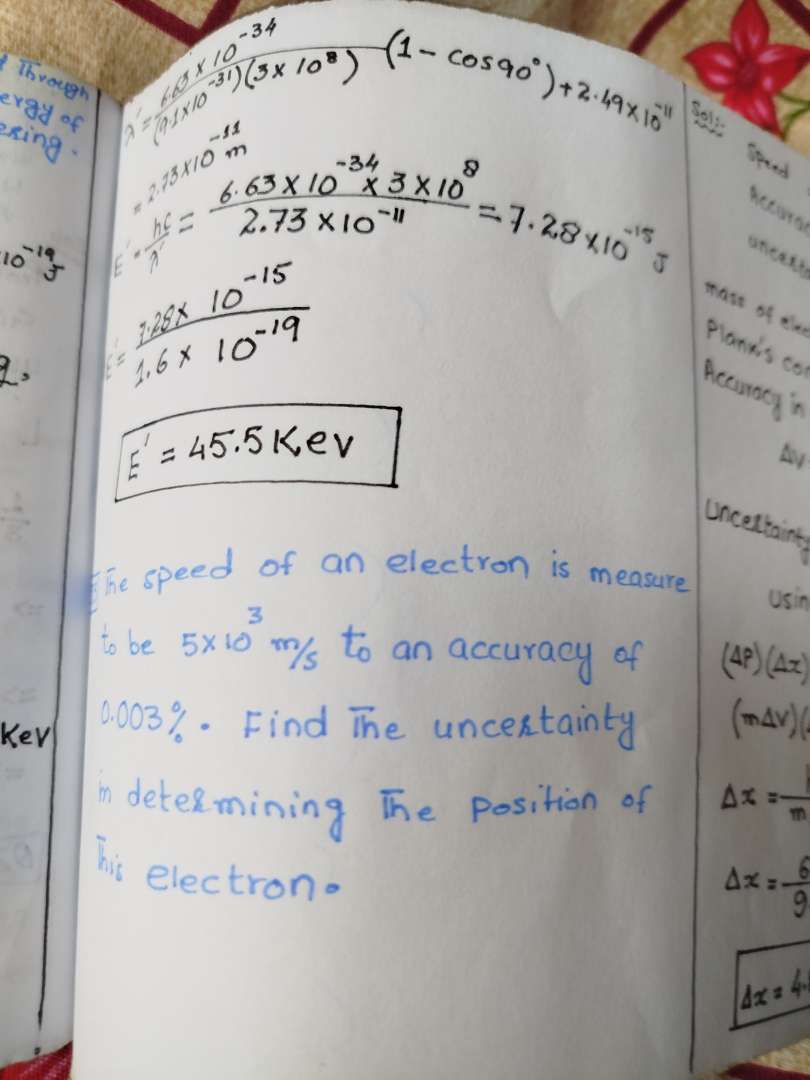 Through
ergy of
ering.
10⁻¹⁹ J
Kev
λ' = 6.63 × 10⁻³⁴ / (9.1×10⁻³¹)(3×10⁸) (1 - cos90°) + 2.49×10⁻¹¹
= 2.73×10⁻¹¹ m
E' = hc/λ' = 6.63×10⁻³⁴ × 3×10⁸ / 2.73×10⁻¹¹ = 7.28×10⁻¹⁵ J
E' = 7.28× 10⁻¹⁵ / 1.6 × 10⁻¹⁹
E' = 45.5 Kev
The speed of an electron is measure
to be 5×10³ m/s to an accuracy of
0.003%. Find The uncertainty
in determining The position of
This electron.
Sol:-
Speed
Accurac
uncerta
mass of elec
Plank's con
Accuracy in
ΔV
Uncertainty
usin
(ΔP)(Δx)
(mΔV)(
Δx =
m
Δx = 6
9
Δx = 4.